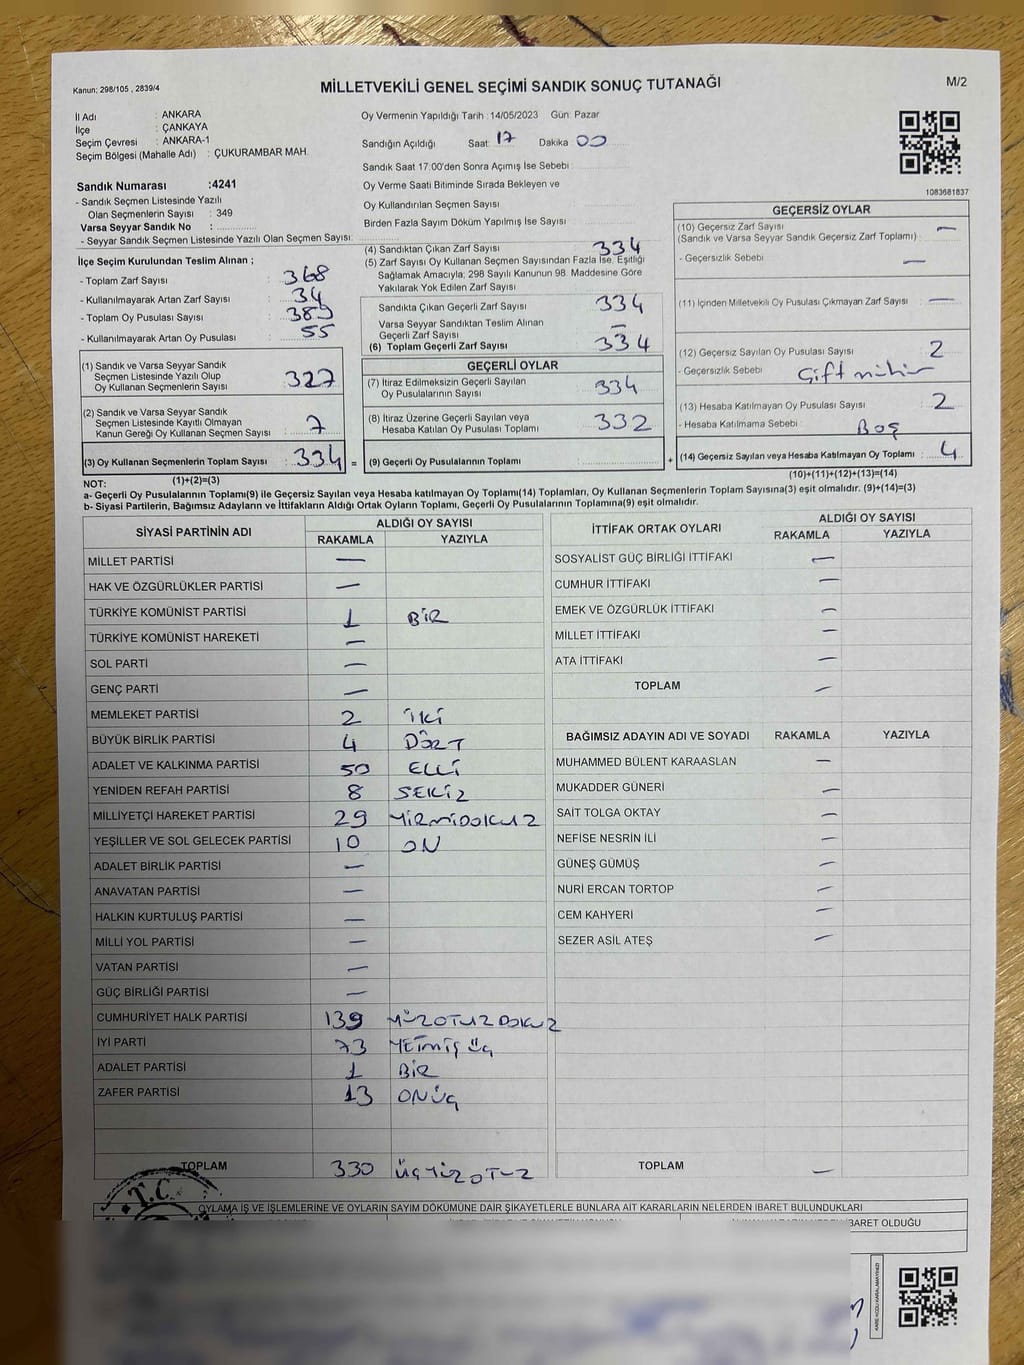 Kanun; 298/105 , 2839/4
MİLLETVEKİLİ GENEL SEÇİMİ SANDIK SONUÇ TUTANAĞI
M/2
İl Adı : ANKARA
İlçe : ÇANKAYA
Seçim Çevresi : ANKARA-1
Seçim Bölgesi (Mahalle Adı) : ÇUKURAMBAR MAH.
Sandık Numarası :4241
- Sandık Seçmen Listesinde Yazılı
Olan Seçmenlerin Sayısı : 349
Varsa Seyyar Sandık No :
- Seyyar Sandık Seçmen Listesinde Yazılı Olan Seçmen Sayısı:
İlçe Seçim Kurulundan Teslim Alınan ;
- Toplam Zarf Sayısı : 368
- Kullanılmayarak Artan Zarf Sayısı : 34
- Toplam Oy Pusulası Sayısı : 389
- Kullanılmayarak Artan Oy Pusulası : 55
(1) Sandık ve Varsa Seyyar Sandık
Seçmen Listesinde Yazılı Olup
Oy Kullanan Seçmenlerin Sayısı : 327
(2) Sandık ve Varsa Seyyar Sandık
Seçmen Listesinde Kayıtlı Olmayan
Kanun Gereği Oy Kullanan Seçmen Sayısı : 7
(3) Oy Kullanan Seçmenlerin Toplam Sayısı : 334 =
Oy Vermenin Yapıldığı Tarih : 14/05/2023 Gün: Pazar
Sandığın Açıldığı Saat 17 Dakika 00
Sandık Saat 17:00'den Sonra Açımış İse Sebebi
Oy Verme Saati Bitiminde Sırada Bekleyen ve
Oy Kullandırılan Seçmen Sayısı
Birden Fazla Sayım Döküm Yapılmış İse Sayısı
(4) Sandıktan Çıkan Zarf Sayısı 334
(5) Zarf Sayısı Oy Kullanan Seçmen Sayısından Fazla İse, Eşitliği
Sağlamak Amacıyla; 298 Sayılı Kanunun 98. Maddesine Göre
Yakılarak Yok Edilen Zarf Sayısı
Sandıkta Çıkan Geçerli Zarf Sayısı 334
Varsa Seyyar Sandıktan Teslim Alınan
Geçerli Zarf Sayısı —
(6) Toplam Geçerli Zarf Sayısı 334
GEÇERLİ OYLAR
(7) İtiraz Edilmeksizin Geçerli Sayılan
Oy Pusulalarının Sayısı 334
(8) İtiraz Üzerine Geçerli Sayılan veya
Hesaba Katılan Oy Pusulası Toplamı 332
(9) Geçerli Oy Pusulalarının Toplamı +
1083681837
GEÇERSİZ OYLAR
(10) Geçersiz Zarf Sayısı —
(Sandık ve Varsa Seyyar Sandık Geçersiz Zarf Toplamı) :
- Geçersizlik Sebebi —
(11) İçinden Milletvekili Oy Pusulası Çıkmayan Zarf Sayısı —
(12) Geçersiz Sayılan Oy Pusulası Sayısı 2
- Geçersizlik Sebebi : Çift mühür
(13) Hesaba Katılmayan Oy Pusulası Sayısı 2
- Hesaba Katılmama Sebebi : Boş
(14) Geçersiz Sayılan veya Hesaba Katılmayan Oy Toplamı : 4
NOT: (1)+(2)=(3) (10)+(11)+(12)+(13)=(14)
a- Geçerli Oy Pusulalarının Toplamı(9) ile Geçersiz Sayılan veya Hesaba katılmayan Oy Toplamı(14) Toplamları, Oy Kullanan Seçmenlerin Toplam Sayısına(3) eşit olmalıdır. (9)+(14)=(3)
b- Siyasi Partilerin, Bağımsız Adayların ve İttifakların Aldığı Ortak Oyların Toplamı, Geçerli Oy Pusulalarının Toplamına(9) eşit olmalıdır.
SİYASİ PARTİNİN ADI ALDIĞI OY SAYISI
RAKAMLA YAZIYLA
MİLLET PARTİSİ —
HAK VE ÖZGÜRLÜKLER PARTİSİ —
TÜRKİYE KOMÜNİST PARTİSİ 1 BİR
TÜRKİYE KOMÜNİST HAREKETİ —
SOL PARTİ —
GENÇ PARTİ —
MEMLEKET PARTİSİ 2 İKİ
BÜYÜK BİRLİK PARTİSİ 4 DÖRT
ADALET VE KALKINMA PARTİSİ 50 ELLİ
YENİDEN REFAH PARTİSİ 8 SEKİZ
MİLLİYETÇİ HAREKET PARTİSİ 29 YİRMİDOKUZ
YEŞİLLER VE SOL GELECEK PARTİSİ 10 ON
ADALET BİRLİK PARTİSİ —
ANAVATAN PARTİSİ —
HALKIN KURTULUŞ PARTİSİ —
MİLLİ YOL PARTİSİ —
VATAN PARTİSİ —
GÜÇ BİRLİĞİ PARTİSİ —
CUMHURİYET HALK PARTİSİ 139 YÜZOTUZDOKUZ
İYİ PARTİ 73 YETMİŞ ÜÇ
ADALET PARTİSİ 1 BİR
ZAFER PARTİSİ 13 ONÜÇ
TOPLAM 330 ÜÇYÜZOTUZ
İTTİFAK ORTAK OYLARI ALDIĞI OY SAYISI
RAKAMLA YAZIYLA
SOSYALİST GÜÇ BİRLİĞİ İTTİFAKI —
CUMHUR İTTİFAKI —
EMEK VE ÖZGÜRLÜK İTTİFAKI —
MİLLET İTTİFAKI —
ATA İTTİFAKI —
TOPLAM —
BAĞIMSIZ ADAYIN ADI VE SOYADI RAKAMLA YAZIYLA
MUHAMMED BÜLENT KARAASLAN —
MUKADDER GÜNERİ —
SAİT TOLGA OKTAY —
NEFİSE NESRİN İLİ —
GÜNEŞ GÜMÜŞ —
NURİ ERCAN TORTOP —
CEM KAHYERİ —
SEZER ASİL ATEŞ —
TOPLAM —
T.C.
OYLAMA İŞ VE İŞLEMLERİNE VE OYLARIN SAYIM DÖKÜMÜNE DAİR ŞİKAYETLERLE BUNLARA AİT KARARLARIN NELERDEN İBARET BULUNDUKLARI
İBARET OLDUĞU
KARE KODU KARALAMAYINIZ!